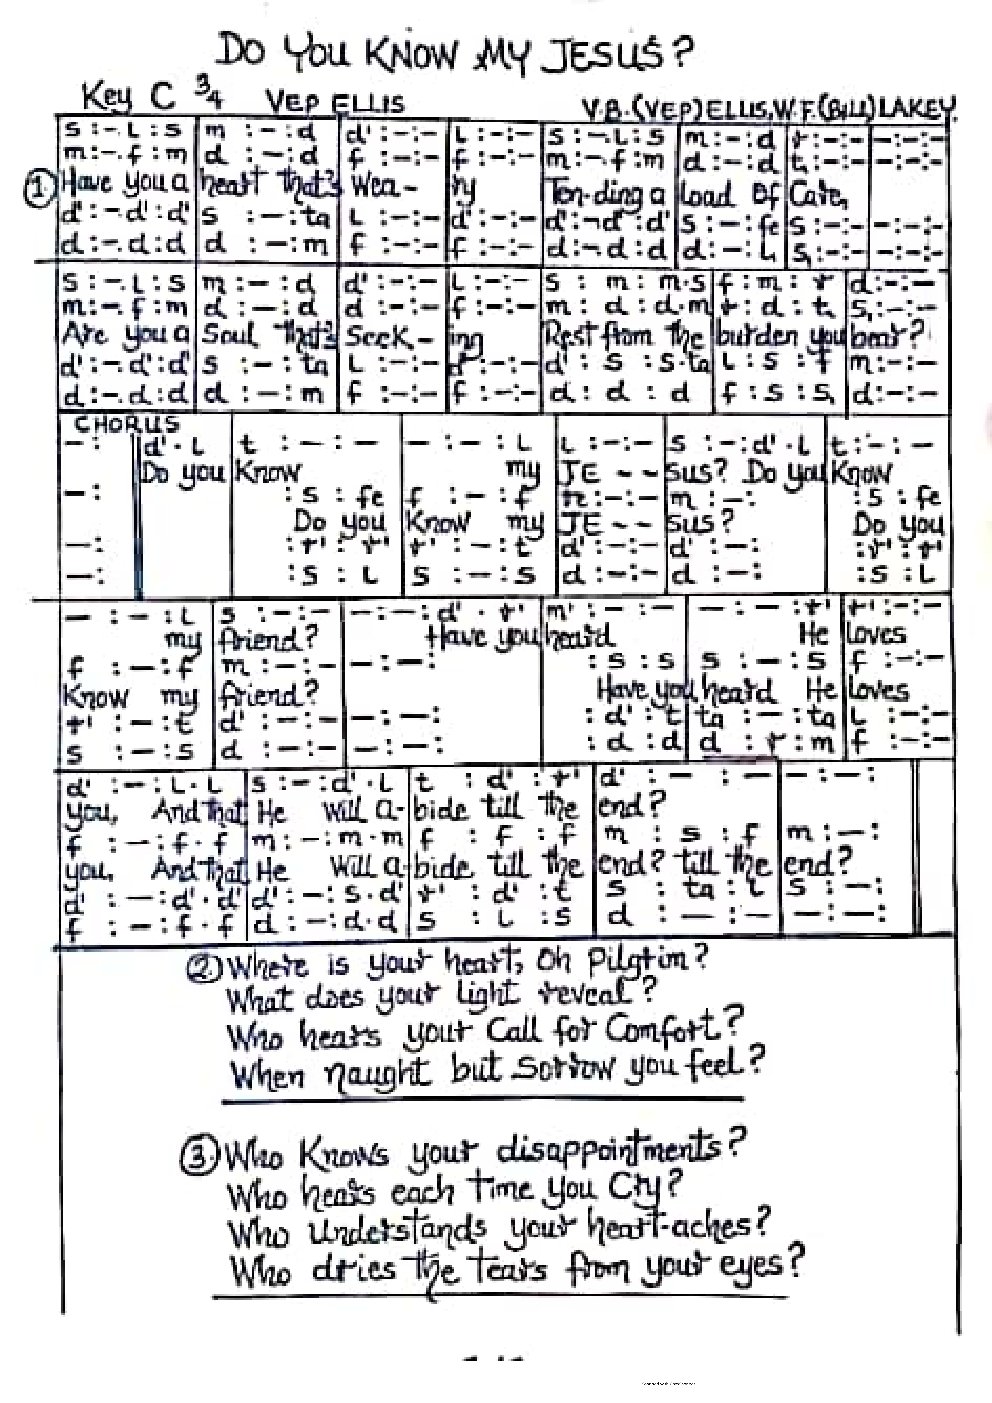 DO YOU KNOW MY JESUS?
Key C 3/4 VEP ELLIS V.B.(VEP)ELLIS,W.F.(Bill)LAKEY.
s :-. l : s | m : - : d | d' :-:- | l :-:- | s :-. l : s | m :-: d | r :-:- | -:-:-
m :-. f : m | d : - : d | f :-:- | f :-:- | m :-. f : m | d :-: d | t, :-:- | -:-:-
① Have you a heart that's Wea- ry Ten-ding a load Of Care,
d' :-. d' : d' | s : - : ta | l :-:- | d' :-:- | d' :-. d' : d' | s :-: fe | s :-:- | -:-:-
d :-. d : d | d : - : m | f :-:- | f :-:- | d :-. d : d | d :-: l, | s, :-:- | -:-:-
s :-. l : s | m : - : d | d' :-:- | l :-:- | s : m : m.s | f : m : r | d :-:-
m :-. f : m | d : - : d | d :-:- | f :-:- | m : d : d.m | r : d : t, | s, :-:-
Are you a Soul that's Seek- ing Rest from the burden you bear?
d' :-. d' : d' | s : - : ta | l :-:- | d' :-:- | d' : s : s.ta | l : s : f | m :-:-
d :-. d : d | d : - : m | f :-:- | f :-:- | d : d : d | f : s : s, | d :-:-
CHORUS
- : | d' . l | t : - : - | - : - : l | l :-:- | s :-: d' . l | t :-:-
Do you Know my JE - - sus? Do you Know
- : | : s : fe | f : - : f | m :-:- | m :-: | : s : fe
Do you Know my JE - - sus? Do you
- : | : r' : r' | r' : - : t | d' :-:- | d' :-: | : r' : r'
- : | : s : l | s : - : s | d :-:- | d :-: | : s : l
- : - : l | s :-:- | -:-: d' . r' | m' : - : - | - : - : r' | r' :-:-
my friend? Have you heard He loves
f : - : f | m :-:- | -:-: | : s : s | s : - : s | f :-:-
Know my friend? Have you heard He loves
r' : - : t | d' :-:- | -:-: | : d' : t | ta : - : ta | l :-:-
s : - : s | d :-:- | -:-: | : d : d | d : r : m | f :-:-
d' : - : l . l | s :-: d' . l | t : d' : r' | d' : - : - | -:-:
you, And that He will a- bide till the end?
f : - : f . f | m :-: m . m | f : f : f | m : s : f | m :-:
you, And that He will a- bide till the end? till the end?
d' : - : d' . d' | d' :-: s . d' | r' : d' : t | s : ta : l | s :-:
f : - : f . f | d :-: d . d | s : l : s | d : - : - | -:-:
② Where is your heart, Oh Pilgrim?
What does your light reveal?
Who hears your Call for Comfort?
When naught but Sorrow you feel?
③ Who Knows your disappointments?
Who hears each time you Cry?
Who understands your heart-aches?
Who dries the tears from your eyes?